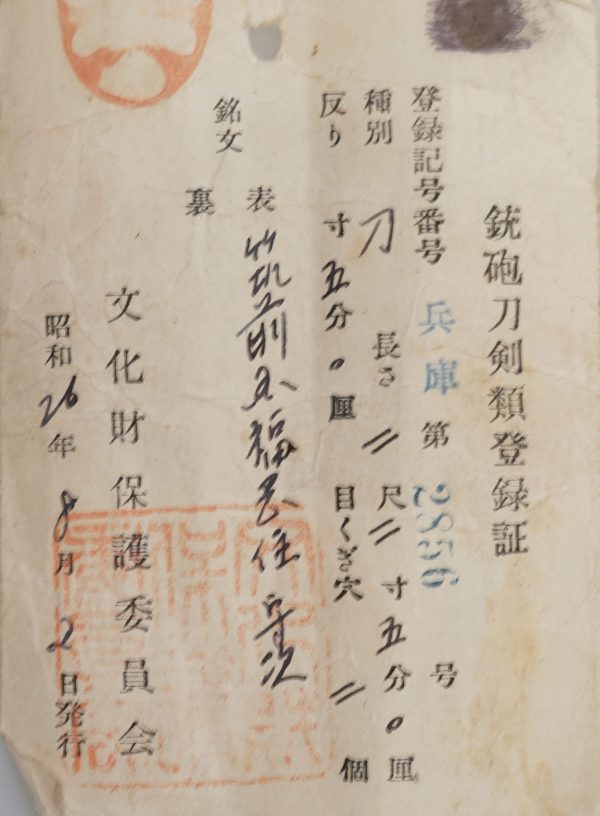 銃砲刀剣類登録証
登録記号番号 兵庫 第 2856 号
種別 刀 長さ 二 尺 二 寸 五 分 0 厘
反り 寸 五 分 0 厘 目くぎ穴 二 個
銘文 表 筑前国福岡住 守次
裏
文化財保護委員会
昭和 26 年 8 月 2 日発行